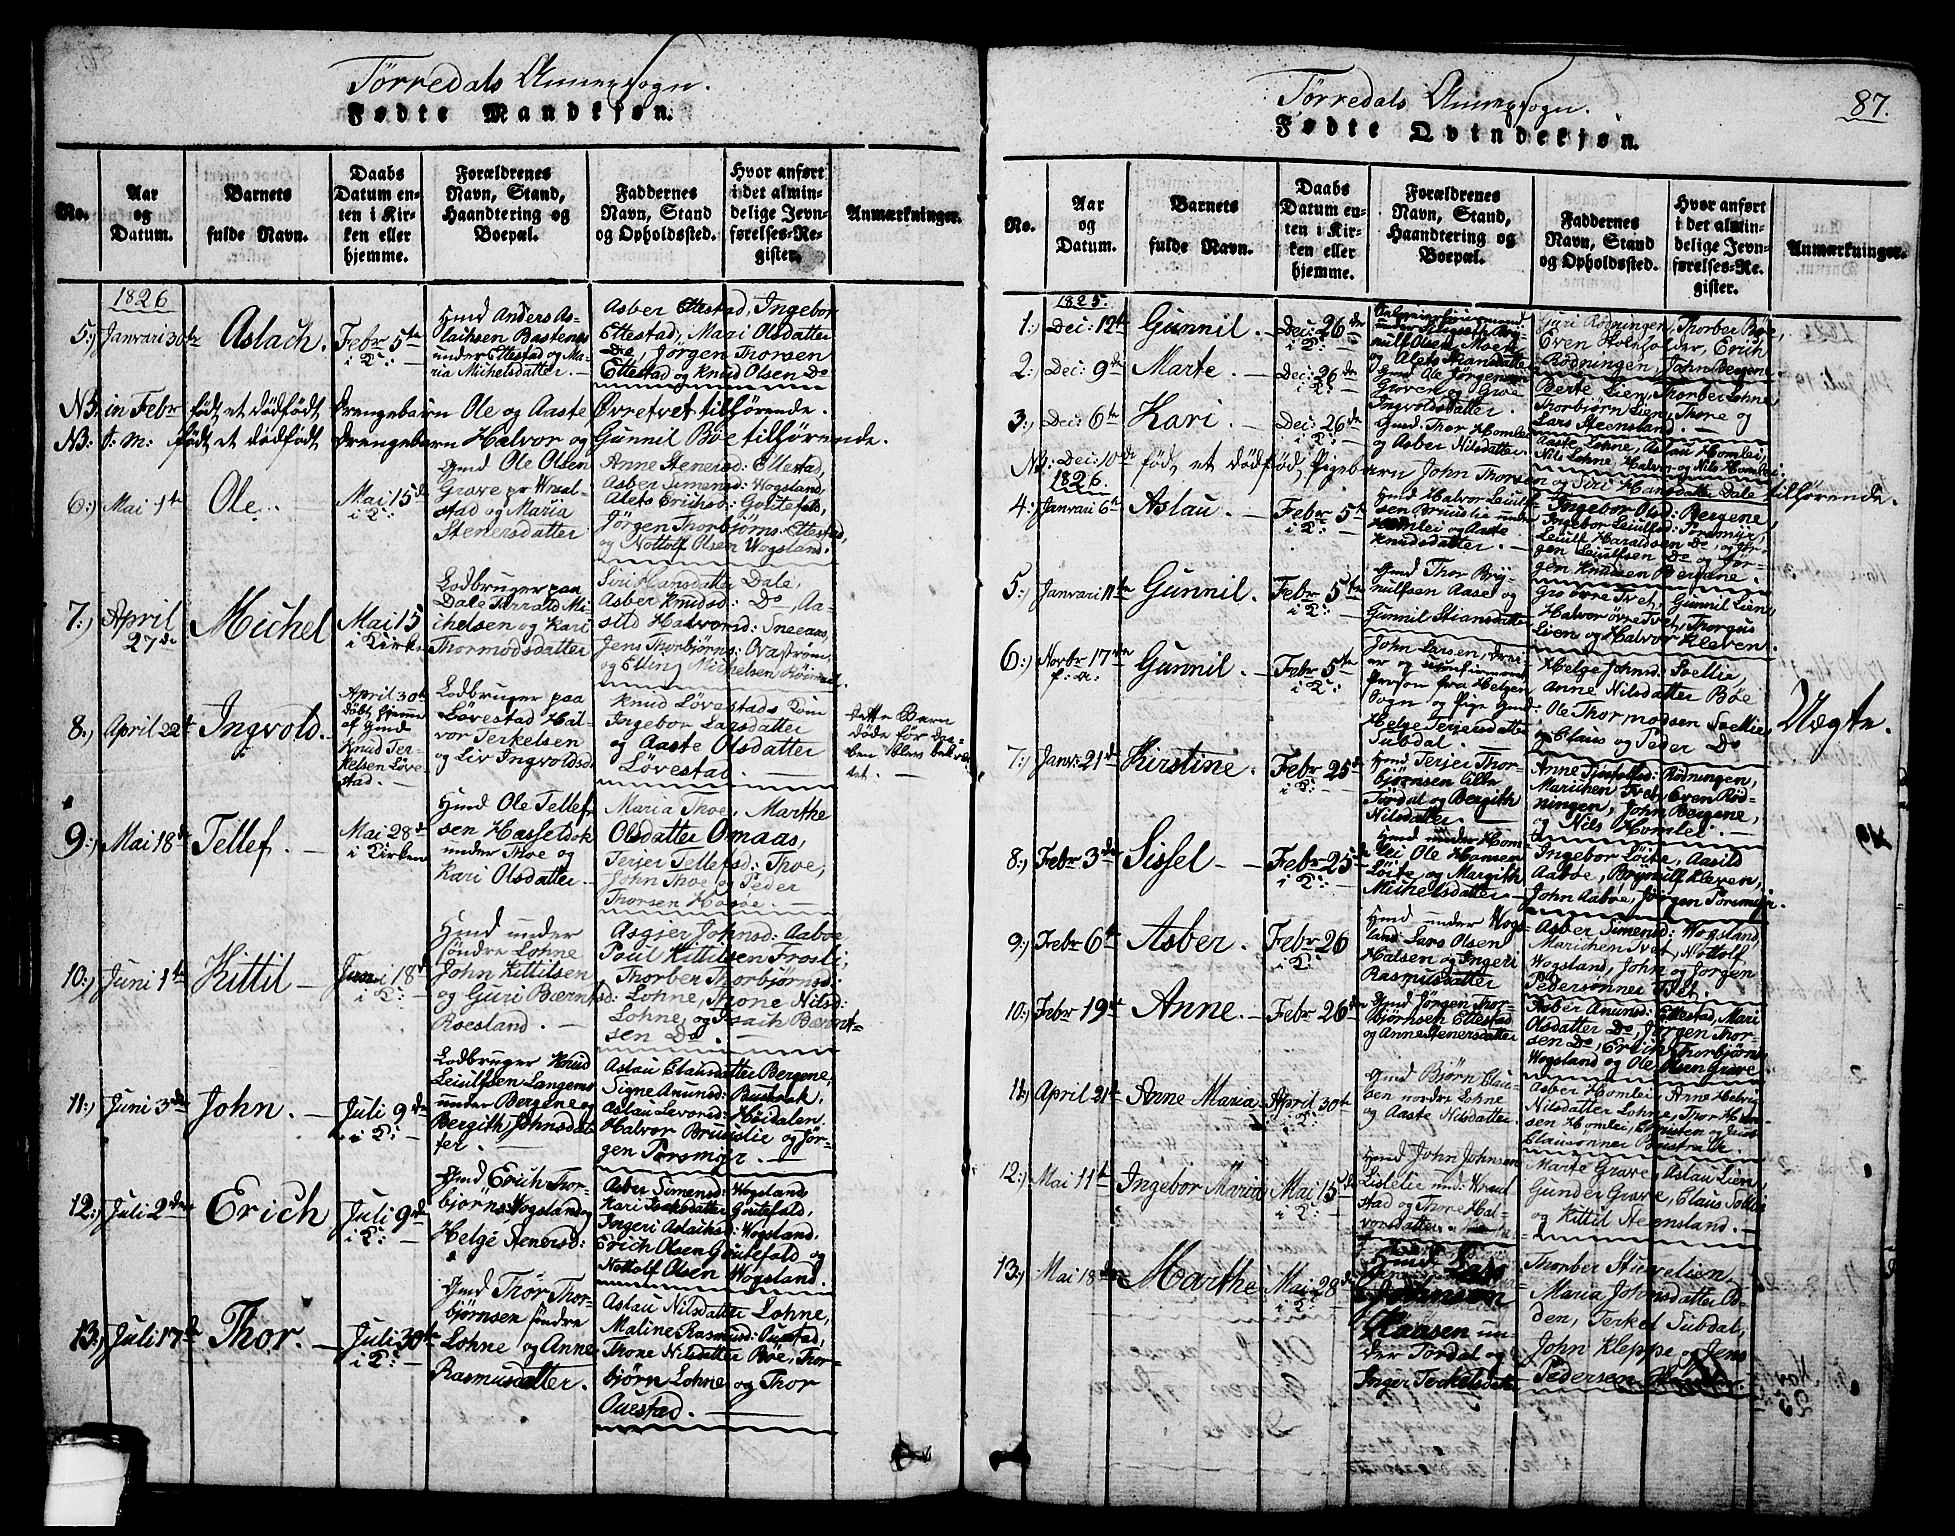 Tørredals Annexsogn.
Fødte Mandkjøn.
No.
Aar og Datum.
Barnets fulde Navn.
Daabs Datum enten i Kirken eller hjemme.
Forældrenes Navn, Stand, Haandtering og Boepæl.
Faddernes Navn, Stand og Opholdssted.
Hvor anført i det almindelige Jevnførelses-Register.
Anmærkninger.
1826
5:) Janvari 30te
Aslach.
Febr 5te
i K:
Gmd Anders As-
lachsen Bastenes
under Ettestad og Ma-
ria Michelsdatter. —
Asber Ettestad, Ingebor
Ettestad, Mari Olsdatter
Do, Jørgen Thorsen
Ettestad og Knud Olsen Do
NB. in Febr født et dødfødt Drengebarn Ole og Aaste Øvretvet tilhørende.
NB: s. m: født et dødfødt Drengebarn Halvor og Gunnil Bøe tilhørende.
6:) Mai 1te
Ole.
Mai 15de
i K:
Gmd Ole Olsen
Grave
stad og Maria
Stenersdatter
Anne Stenersd: Ettestad,
Asber Simensd: Wogsland,
Alets Erichsd: Goutefald,
Jørgen Thorbjørns: Ettestad,
og Nottolf Olsen Wogsland.
7:) April
27de
Michel
Mai 15
i Kirke
Lodbruger paa
Dale Tarrald Mi-
chelsen og Kari
Thormodsdatter
Siri Hansdatter Dale,
Asber Knudsd: Do, Aa-
sild Halvorsd: Sneeaas,
Jens Thorbjørns:
og Elling Michelsen
8:) April 22de
Ingvold.
April 30te
døbt hjemme
af Gmd
Knud Ter-
kelsen Løve-
stad. —
Lodbruger paa
Løvestad Hal-
vor Terkelsen
og Liv Ingvoldsd
Knud Løvestads Kone
Ingebor Larsdatter
og Aaste Olsdatter
Løvestad. —
dette Barn
døde før Daa-
ben blev bekræf-
tet. —
9:) Mai 18de
Tellef. —
Mai 28de
i Kirken
Gmd Ole Tellef-
sen Hasseldok
under Thoe og
Kari Olsdatter —
Maria Thoe, Marthe
Olsdatter Omaas,
Terjer Tellefsd: Thoe,
John Thoe og Peder
Thorsen
10:) Juni 1te
Kittil —
Juni 18de
i K:
Gmd under
søndre Lohne
John Kittilsen
og Guri Bærnts
Roesland. —
Asgjer Johnsd: Aaboe
Poul Kittilsen Frosli,
Thorber Thorbjørnsd:
Lohne, Thone Nilsd:
Lohne, og Isach Bærnt-
sen Do. —
11:) Juni 3de
John. —
Juli 9de
i K:
Lodbruger Knud
Leiulfsen Langemyr
under Bergene og
Bergith Johnsdat-
ter. —
Aslau Clausdatter Bergene,
Signe Anunsd: Bustrak,
Aslau Levorsd: Høidalen,
Halvor Bruuslie og Jør-
gen Torsmyr. —
12:) Juli 2den
Erich
Juli 9de
i K:
Gmd Erich Thor-
bjørns: Wogsland og
Helge Stenersd:
Asber Simensd: Wogsland
Kari Isaksdatter Goutefald,
Ingeri Aslaksd: Wogsland,
Erich Olsen Goutefald og
Nottolf Olsen Wogsland.
13:) Juli 17de
Thor. —
Juli 30te
i K:
Gmd Thor Thor-
bjørnsen søndre
Lohne og Anne
Rasmusdatter.
Aslau Nilsdatter Lohne,
Maline Rasmusd: Ouestad,
Thone Nilsdatter Bøe, Thor-
bjørn Lohne og Thor
Ouestad. —
Tørredals Annexsogn.
87.
Fødte Qvindekjøn.
No.
Aar og Datum.
Barnets fulde Navn.
Daabs Datum enten i Kirken eller hjemme.
Forældrenes Navn, Stand, Haandtering og Boepæl.
Faddernes Navn, Stand og Opholdssted.
Hvor anført i det almindelige Jevnførelses-Register.
Anmærkninger.
1825.
1:) Dec: 12te
Gunnil. —
Dec: 26de
i K:
Guri Rødningen, Thorber Bøe,
Even Erich
Rødningen, John Bergene.
2:) Dec: 9de
Marte. —
Dec: 26de
i K:
Gmd Ole Jørgensen
Graven og Groe
Ingvoldsdatter.
Berte Lien, Thorber Lohne,
Thorbjørn Lien, Thore og
Lars Steensland. —
3:) Dec: 6te
Kari. —
Dec: 26de
i K:
Gmd: Thor Homlei
og Asber Nilsdatter
Aaste Lohne, Aslau Homlei,
Nils Lohne, Halvor og Nils Homlei
NB: Dec: 10de født et dødfødt Pigebarn John Thorsen og Siri Hansdatter Dale tilhørende.
1826.
4:) Janvari 6te
Aslau. —
Febr 5te
i K:
Gmd Halvor Leiulf-
sen Bruuslie under
Homlei og Aaste
Knudsdatter. —
Ingebor Olsd: Bergene,
Ingebor Leiulfsd: Torsmyr,
Leiulf Haraldsen Do, og Jør-
gen Leiulfsen Do og Jør-
gen Knudsen Bergene. —
5:) Janvari 11te
Gunnil. —
Febr 5te
i K:
Gmd Thor Bry-
nulfsen Aase og
Gunnil Stiansdatter
Gro øvre Tvet, Gunnil Lien,
Halvor øvre Tvet, Thorgus
Lien og Halvor Kleven.
6:) Novbr 17de
f. A:
Gunnil —
Febr 5te
i K:
John Larsen,
Person fra Helgen
Sogn og Pige Gmd:
Helge Terjersdatter
Tubdal. —
Helge Johnsd: Soellie,
Anne Nilsdatter Bøe
Ole Thormodsen Soellie,
og Claus og Peder Do
Uægte.
7:) Janvr: 21de
Kirstine.
Febr 25de
i K:
Gmd Terjer Thor-
bjørnsen lille
Tørdal og Bergith
Nilsdatter. —
Anne Rødningen,
Marichen Tvet, Even Rød-
ningen, John Bergene,
og Nils Homlei. —
8:) Febr 3de
Sissel —
Febr 25de
i K:
Gmd under Hom-
lei Ole Hansen
Løite, og Margith
Michelsdatter
Ingebor Løite, Aasild
Aaboe, Brynulf Kleven,
John Aaboe, Jørgen Torsmyr.
9:) Febr 6te
Asber.
Febr 26
i K:
Gmd under Wogs-
land: Lars Olsen
Halsen og Ingeri
Rasmusdatter
Asber Simensd: Wogsland,
Marichen Tvet, Nottolf
Wogsland, John og Jørgen
Pedersønner Tvet. —
10:) Febr 19de
Anne. —
Febr 26de
i K:
Gmd Jørgen Thor-
bjørnsen Ettestad
og Anne Stenersdatter
Asber Anunsd: Ettestad, Mari
Olsdatter Do, Jørgen Thor-
sen Do, Erich Thorbjørns
Wogsland og Ole Olsen Grave.
11:) April 21de
Anne Maria
April 30te
i K:
Gmd Bjørn Clau-
sen nordre Lohne
og Aaste Nilsdatter.
Asber Homlei, Anne Helvig
Nilsdatter Lohne, Thor Han-
sen Homlei, Christen og
Clausønner Bustrak. —
12:) Mai 11te
Ingebor Maria
Mai 15de
i K:
Gmd John Johnsen
Lislelie und: Wraal-
stad og Thore Hal-
vorsdatter.
Marte Grave, Aslau Lien,
Gunder Grave, Claus
og Kittil Steensland. —
13:) Mai 18de
Marthe
Mai 28de
i K:
Gmd Lars
Johnsen
Klaasen un-
der Tørdal og
Inger Terkelsdatter
Thorber Stuvelien,
Maria Johnsdatter Os-
den, Terkel Tubdal,
John Kleppe og Jens
Pedersen